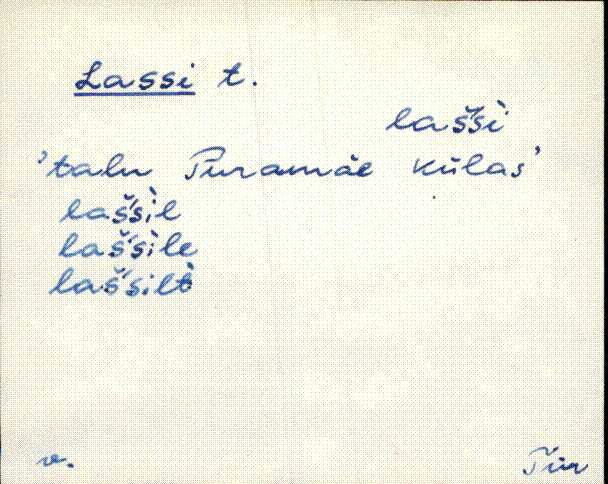 Lassi t.
lašši̬
'talu Puramäe külas'
laššil
laššile
laššilt
v.
Tür